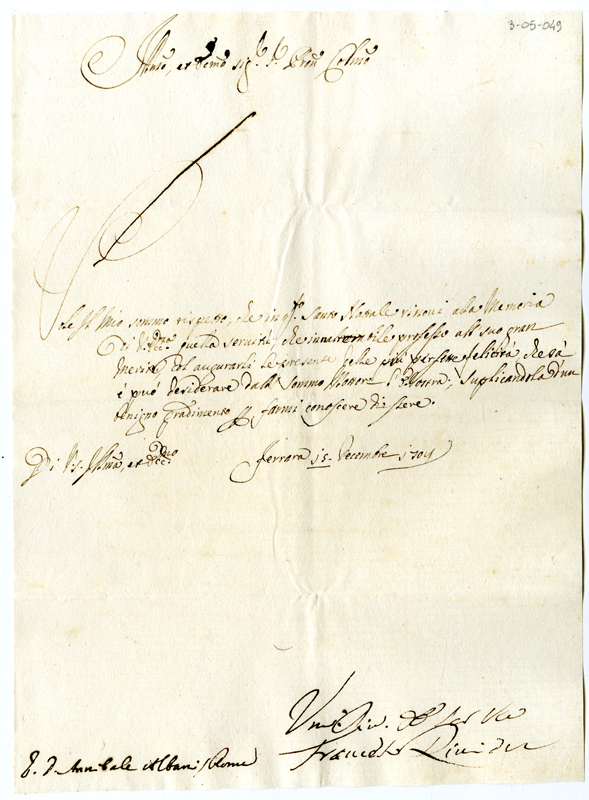 3-05-049
Illmo, et Revmo Sig.r Pron Colmo
Vole il Mio sommo rispetto, che in q.to Santo Natale rinovi alla Memoria
Di V. ecc. quella servitù, che professo all suo gran
Merito, col augurarli le presente feste più felicità, che sà
è può desiderare dall sommo suplicandola d'un
benigno gradimento farmi conoscere di essere.
Di V.S. Illma, et Rev.
Ferrara 15. Decembre 1704
Umil. Div. et
Francesco
D. Annibale Albani / Roma